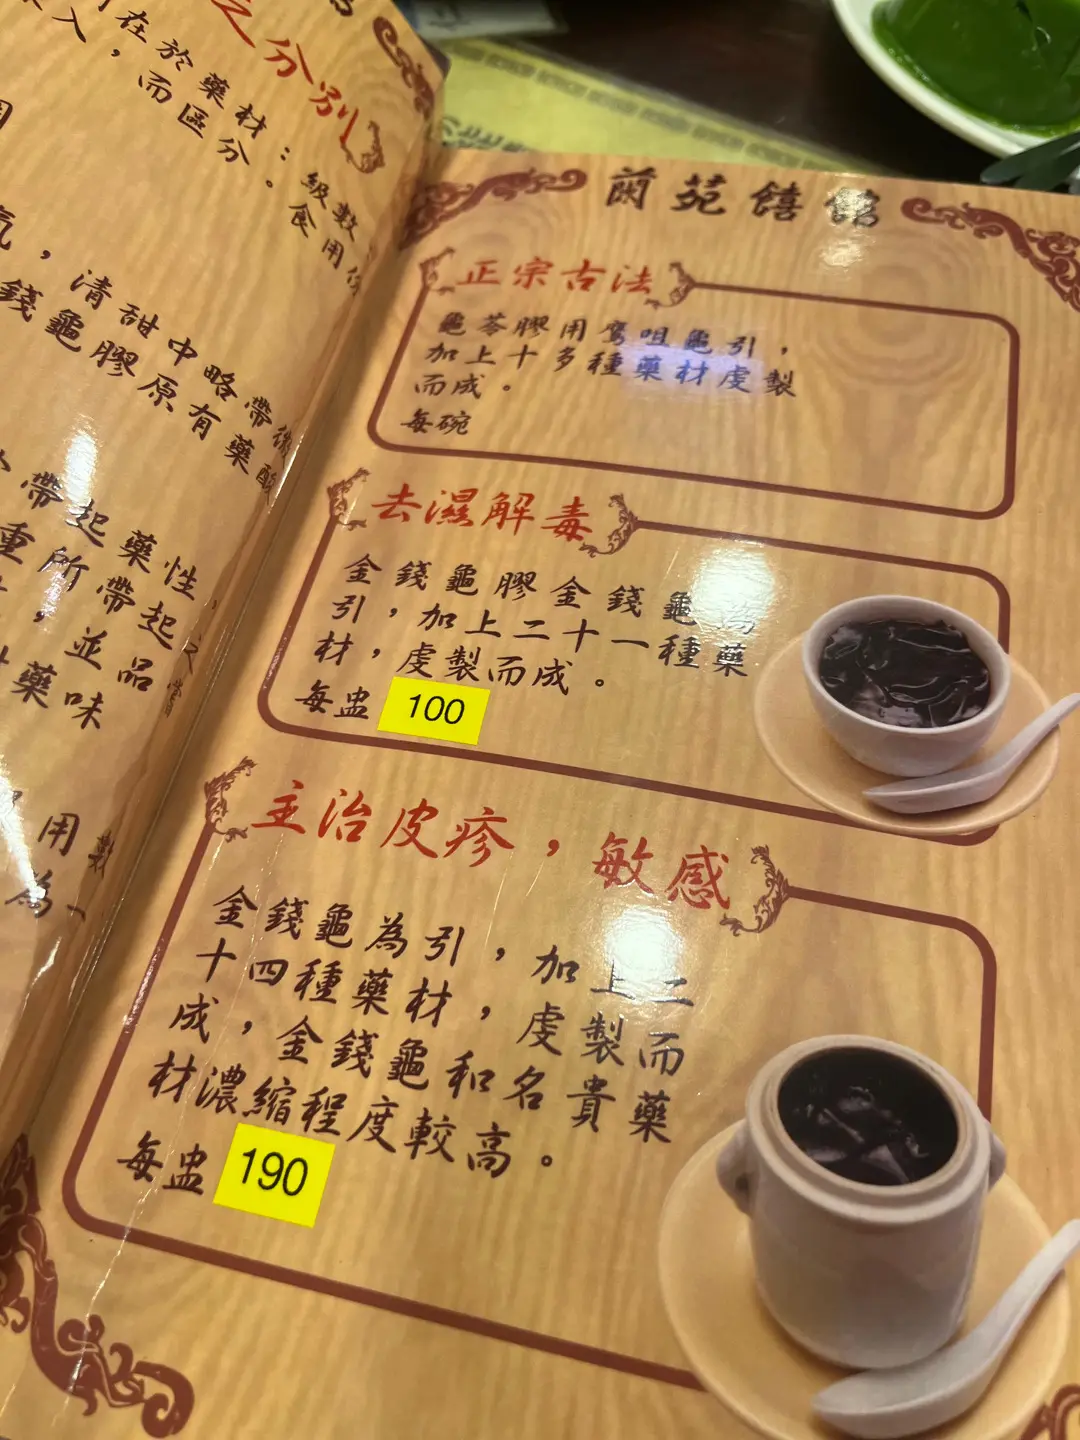 之分別
在於藥材：級數
入，而區分。食用
氣，清甜中略帶微
錢龜膠原有藥酸
帶起藥性，
重所帶起
，並品
藥味
用數
為一
蘭苑饎館
正宗古法
龜苓膠用鷹咀龜引，
加上十多種藥材虔製
而成。
每碗
去濕解毒
金錢龜膠金錢龜為
引，加上二十一種藥
材，虔製而成。
每盅 100
主治皮疹，敏感
金錢龜為引，加上二
十四種藥材，虔製而
成，金錢龜和名貴藥
材濃縮程度較高。
每盅 190